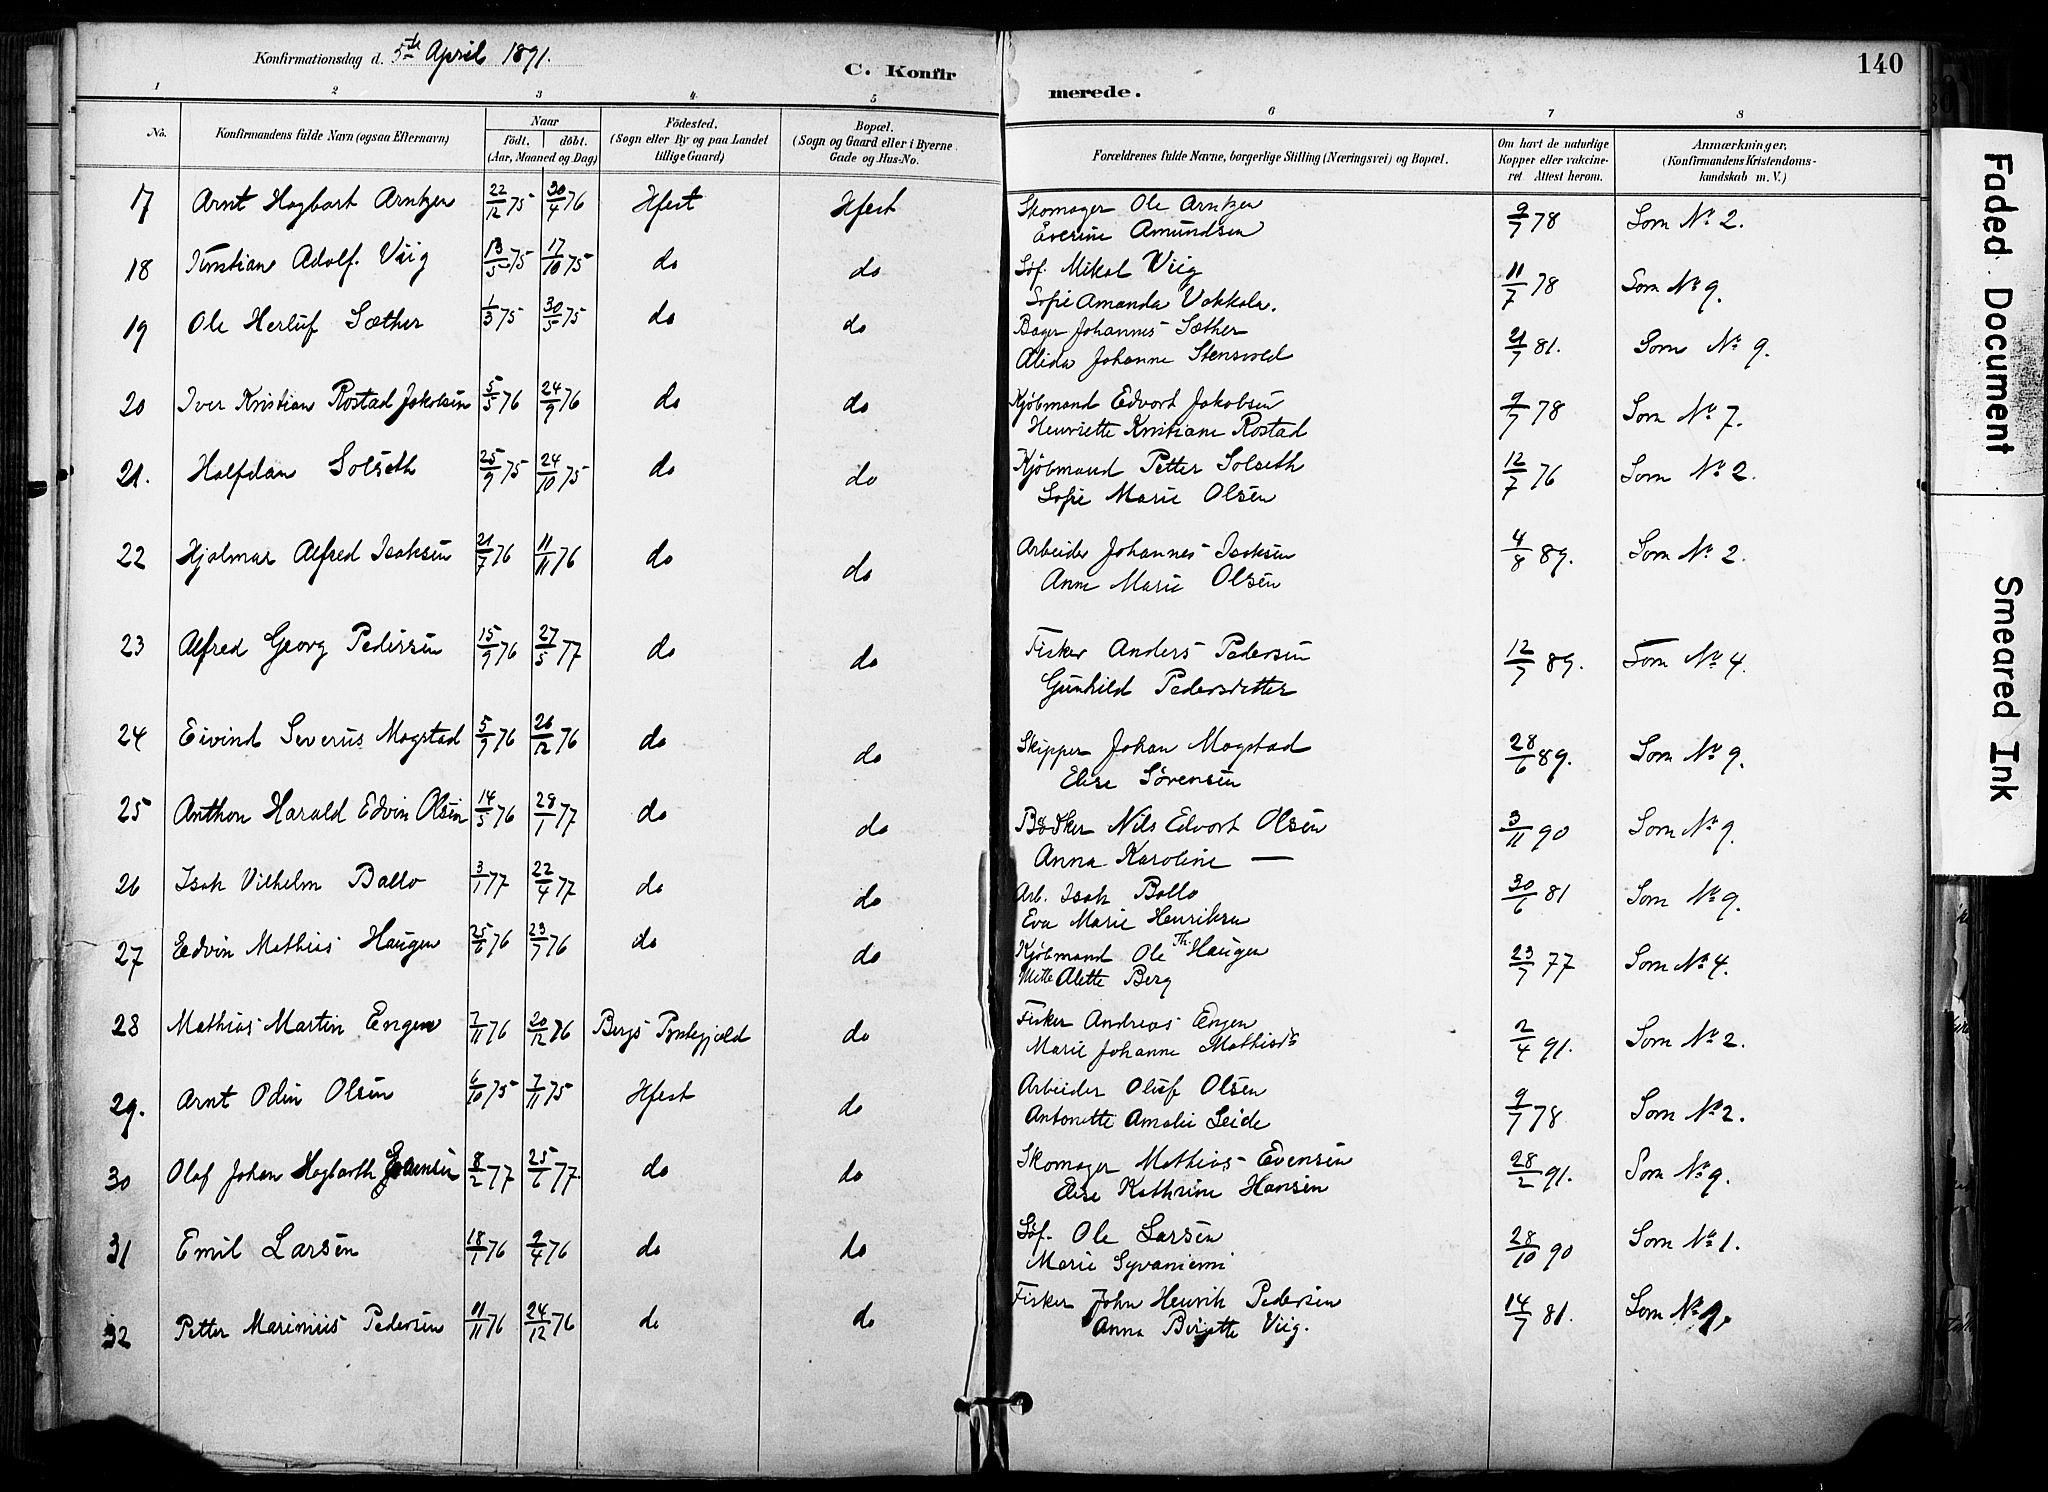 Konfirmationsdag d. 5te April 1891.
C. Konfirmerede.
140
1 2 3 4 5 6 7 8
No.
Konfirmandens fulde Navn (ogsaa Efternavn)
Naar födt. döbt. (Aar, Maaned og Dag)
Födested. (Sogn eller By og paa Landet tillige Gaard)
Bopæl. (Sogn og Gaard eller i Byerne Gade og Hus-No.
Forældrenes fulde Navne, borgerlige Stilling (Næringsvei) og Bopæl.
Om havt de naturlige Kopper eller vakcineret Attest herom.
Anmærkninger. (Konfirmandens Kristendomskundskab m. V.)
17 Arnt Hagbart Arntzen 22/12 75 30/4 76 Hfest Hfest Skomager Ole Arntzen 9/7 78 Som No 2.
Everine Amundsen
18 Kristian Adolf Viig 13/5 75 17/10 75 do do Søf. Mikal Viig 11/7 78 Som No 9.
Sofie Amanda Vokkola.
19 Ole Herluf Sæther 1/3 75 30/5 75 do do Bager Johannes Sæther 21/7 81. Som No 9.
Alida Johanne Stensvold
20 Iver Kristian Rostad Jakobsen 5/5 76 24/9 76 do do Kjøbmand Edvart Jakobsen 9/7 78 Som No 7.
Henriette Kristiane Rostad
21. Halfdan Solseth 25/9 75 24/10 75 do do Kjøbmand Petter Solseth 12/7 76 Som No 2.
Sofie Marie Olsen
22 Hjalmar Alfred Isaksen 21/7 76 11/11 76 do do Arbeider Johannes Isaksen 4/8 89. Som No 2.
Anne Marie Olsen
23 Alfred Georg Pedersen 15/9 76 27/5 77 do do Fisker Anders Pedersen 12/7 89. Som No 4.
Gunhild Pedersdetter
24 Eivind Severus Mogstad 5/9 76 26/12 76 do do Skipper Johan Mogstad 28/6 89. Som No 9.
Elise Sørensen
25 Anthon Harald Edvin Olsen 14/5 76 28/1 77 do do Bødker Nils Edvart Olsen 3/11 90 Som No 9.
Anna Karoline —
26 Isak Vilhelm Ballo 3/1 77 22/4 77 do do Arb. Isak Ballo 30/6 81 Som No 9.
Eva Marie Henriksen
27 Edvin Mathias Haugen 25/6 76 23/7 76 do do Kjøbmand Ole Th. Haugen 23/7 77 Som No 4.
Mette Alette Berg
28 Mathias Martin Engen 7/11 76 20/12 76 Bergs Prstegjæld do Fisker Andreas Engen 2/4 91. Som No 2.
Marie Johanne Mathisdr
29. Arnt Odin Olsen 6/10 75 7/11 75 Hfest do Arbeider Oluf Olsen 9/7 78 Som No 2.
Antonette Amalie Leide
30 Olaf Johan Hagbarth Evensen 8/2 77 25/6 77. do do Skomager Mathias Evensen 28/2 91. Som No 9.
Elise Kathrine Hansen
31 Emil Larsen 18/1 76 2/4 76 do do Søf. Ole Larsen 28/10 90 Som No 1.
Marie Syvaniemi
32 Petter Marinius Pedersen 11/11 76 24/12 76 do do Fisker John Henrik Pedersen 14/7 81. Som No 9.
Anna Birgitte Viig.
Faded Document
Smeared Ink